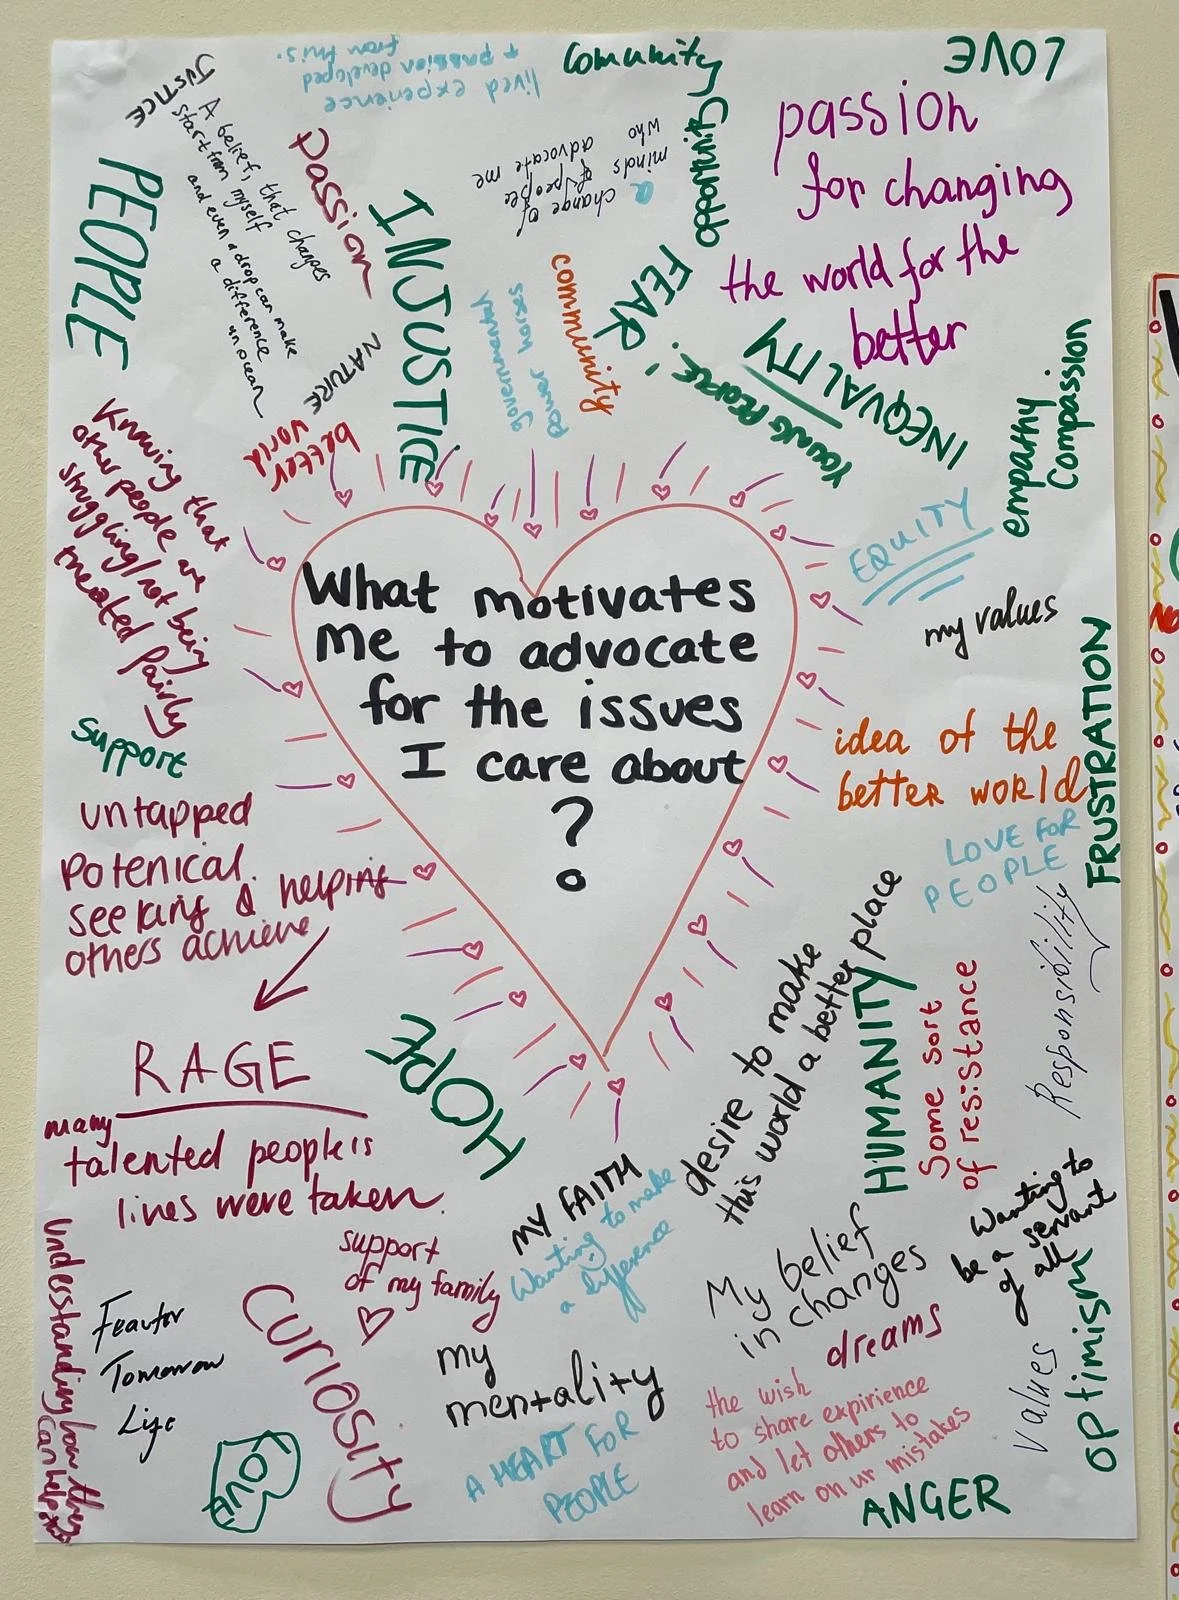 What motivates
me to advocate
for the issues
I care about
?
JUSTICE
A belief, that changes
start from myself
and even a drop can make
a difference
un ocean
lived experience
+ passion developed
from this.
Comunity
LOVE
opportunity
passion
for changing
the world for the
better
PEOPLE
Passion
INJUSTICE
change of
minds
of people
who
advocate me
FEAR
community
NATURE
better
world
YOUNG PEOPLE!
INEQUALITY
empathy
Compassion
EQUITY
my values
FRUSTRATION
idea of the
better world
LOVE FOR
PEOPLE
Responsibility
Knowing that
other people are
struggling/not being
treated fairly
support
untapped
Potenical.
seeking & helping
others achieve
RAGE
many
talented people is
lives were taken.
HOPE
desire to make
this world a better place
HUMANITY
Some sort
of resistance
Wanting to
be a servant
of all
MY FAITH
Wanting to make
a difference
support
of my family
My belief
in changes
dreams
Understanding how they
can help
Feautor
Tomorrow
Life
CURIOSITY
LOVE
my
mentality
A HEART FOR
PEOPLE
the wish
to share expirience
and let others to
learn on ur mistakes
Values
optimism
ANGER